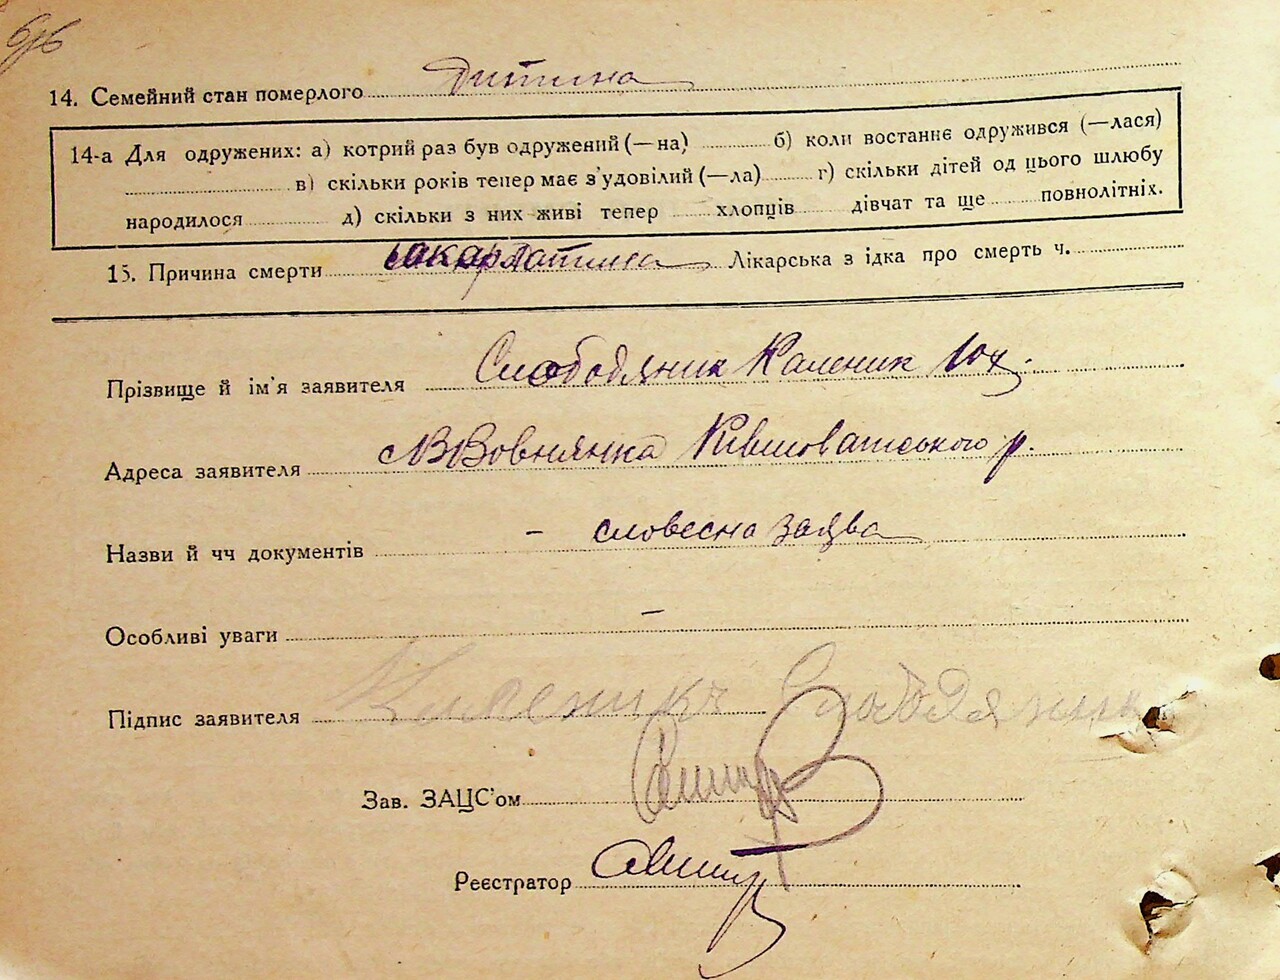 14. Семейний стан померлого Дитина
14-а Для одружених: а) котрий раз був одружений (—на) б) коли востаннє одружився (—лася)
в) скільки років тепер має з'удовілий (—ла) г) скільки дітей од цього шлюбу
народилося д) скільки з них живі тепер хлопців дівчат та ще повнолітніх.
15. Причина смерти скарлатина Лікарська з ідка про смерть ч.
Прізвище й ім'я заявителя Слободяник Каленик Юх.
Адреса заявителя с В Вовнянка Ківшоватського р.
Назви й чч документів - словесна заява
Особливі уваги —
Підпис заявителя Каленикъ
Зав. ЗАЦС'ом
Реєстратор